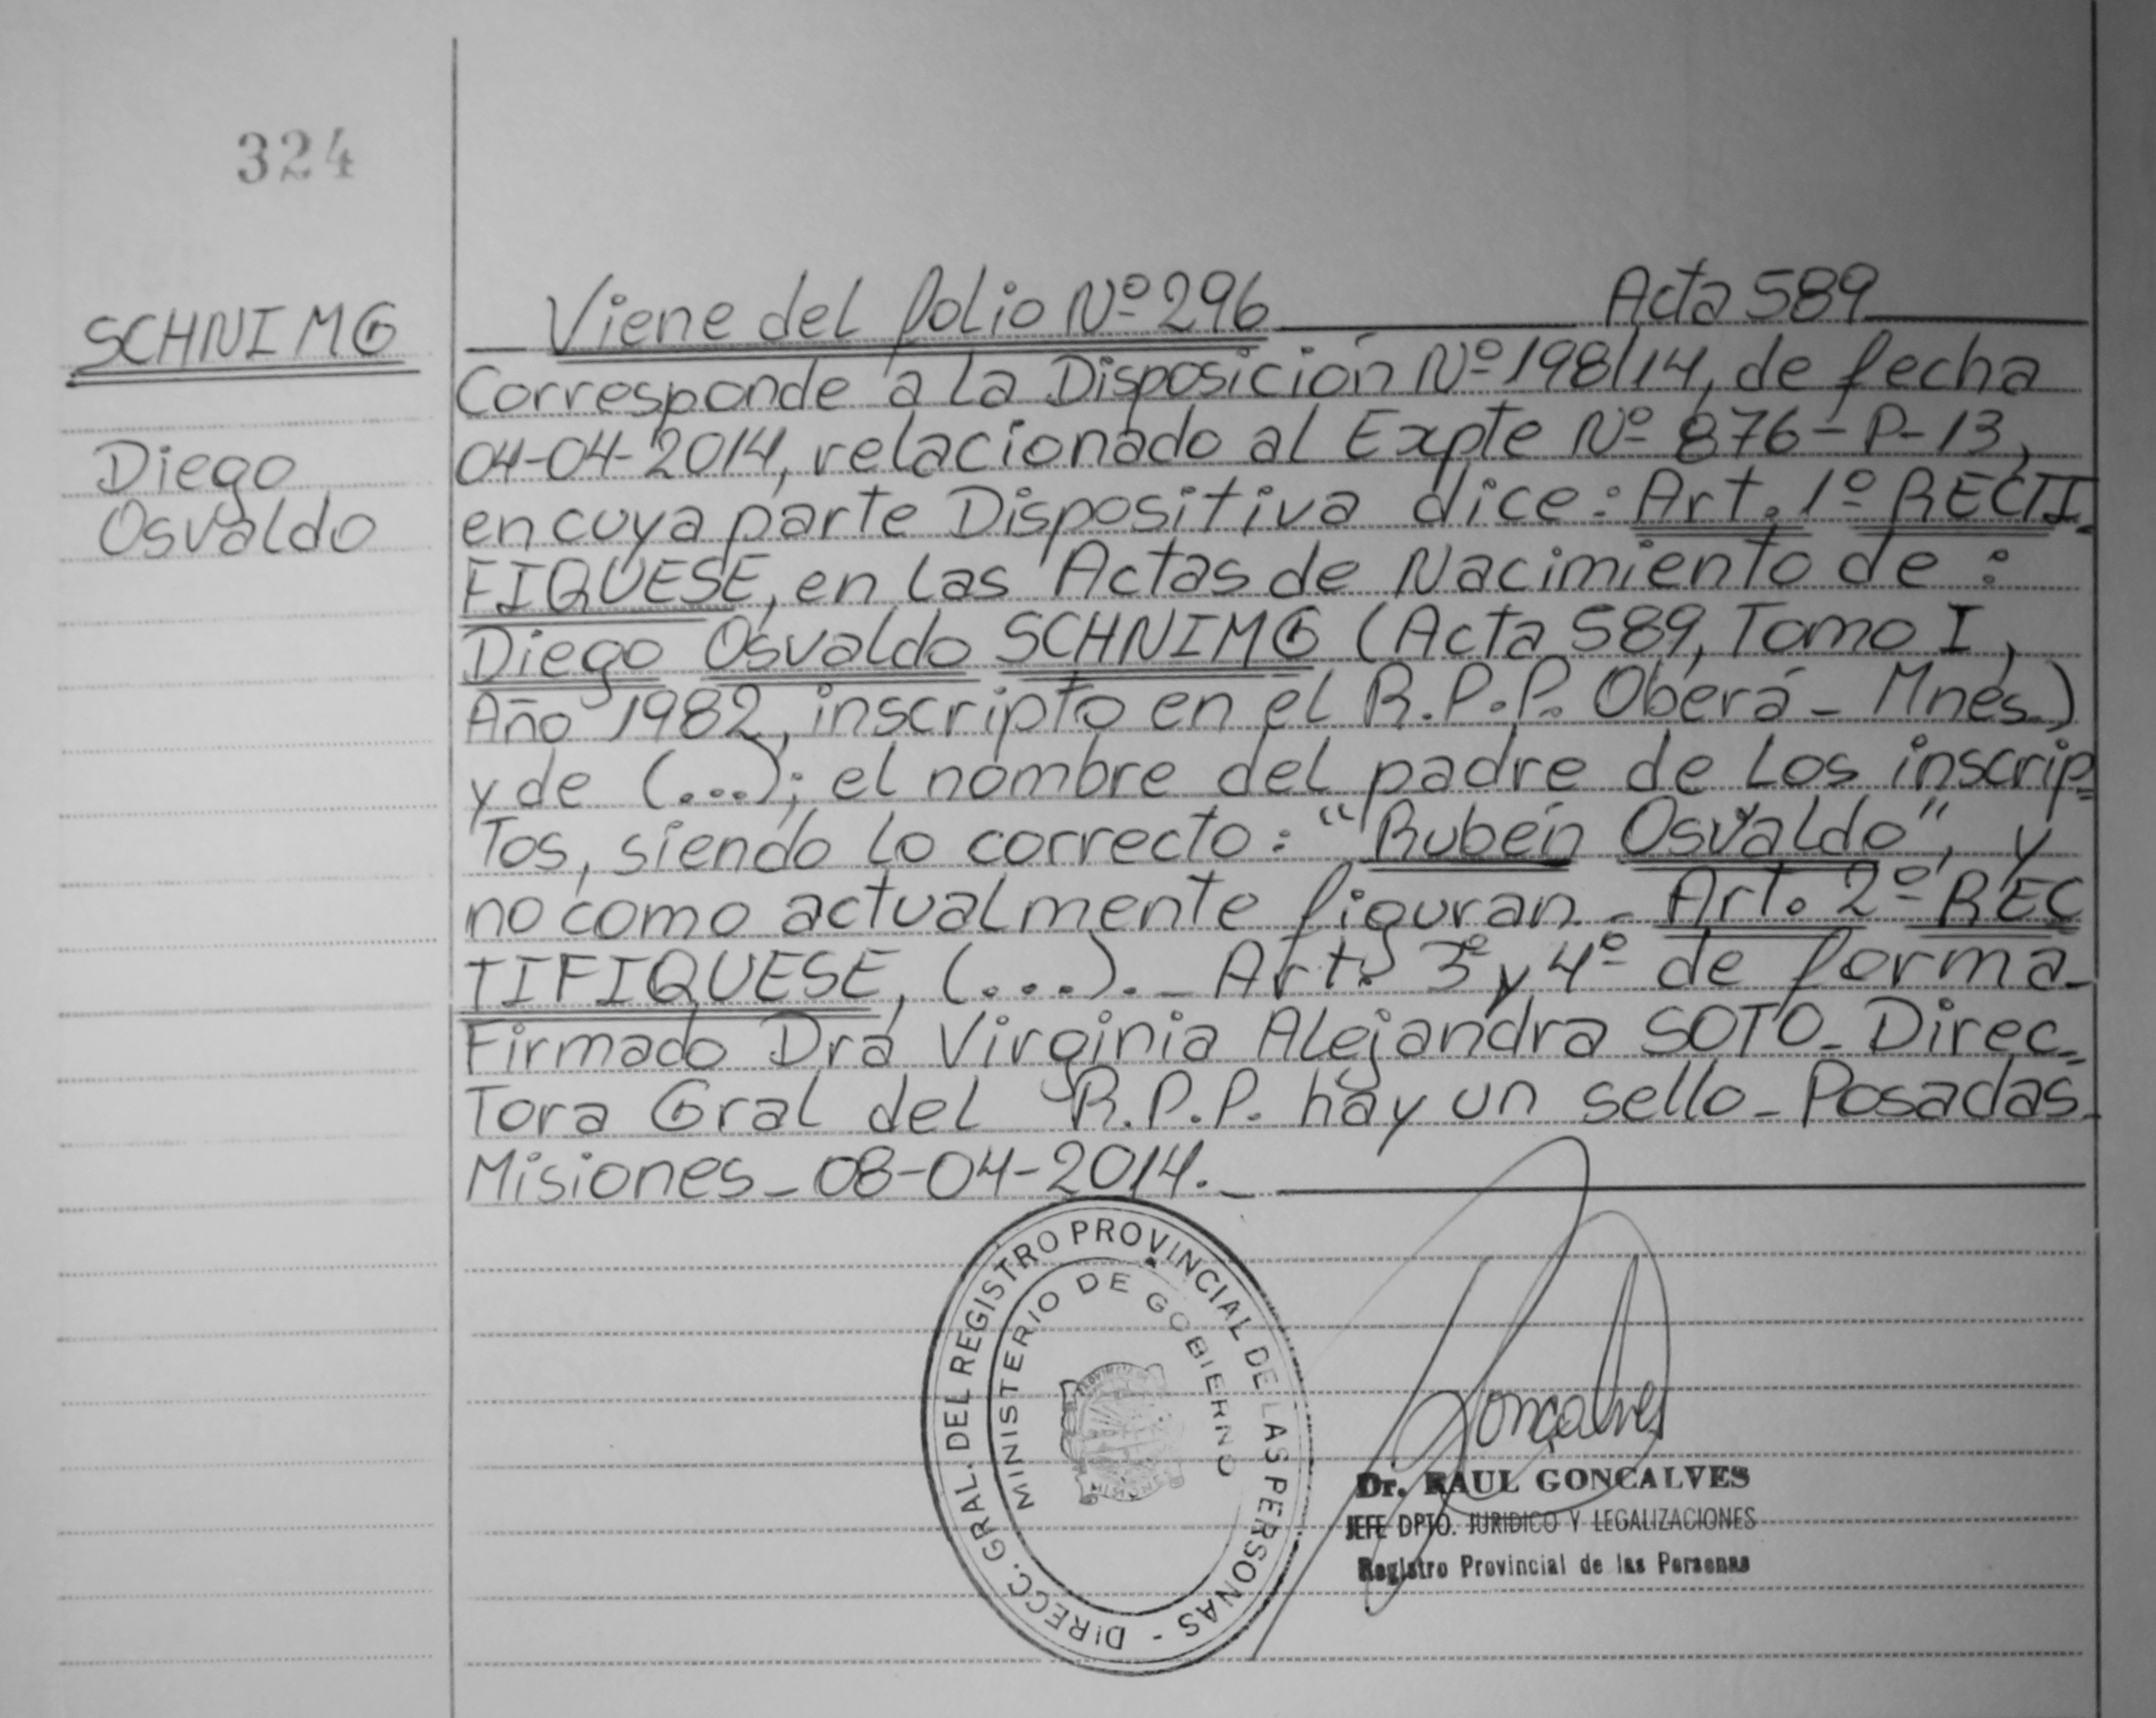 324
SCHNIMG
Diego
Osvaldo
Viene del folio Nº 296 Acta 589
Corresponde a la Disposición Nº 198/14, de fecha
04-04-2014, relacionado al Expte Nº 876-P-13,
en cuya parte Dispositiva dice: Art. 1º RECTI
FIQUESE, en las Actas de Nacimiento de:
Diego Osvaldo SCHNIMG (Acta 589, Tomo I,
Año 1982, inscripto en el R.P.P. Oberá - Mnes)
y de (...); el nombre del padre de los inscrip-
tos, siendo lo correcto: "Rubén Osvaldo", y
no como actualmente figuran.- Art. 2º REC
TIFIQUESE, (...).- Art. 3º y 4º de forma-
Firmado Dra Virginia Alejandra SOTO- Direc-
tora Gral del R.P.P. hay un sello- Posadas-
Misiones- 08-04-2014.-
DIRECC. GRAL. DEL REGISTRO PROVINCIAL DE LAS PERSONAS -
MINISTERIO DE GOBIERNO
Gonçalves
Dr. RAUL GONCALVES
JEFE DPTO. JURIDICO Y LEGALIZACIONES
Registro Provincial de las Personas